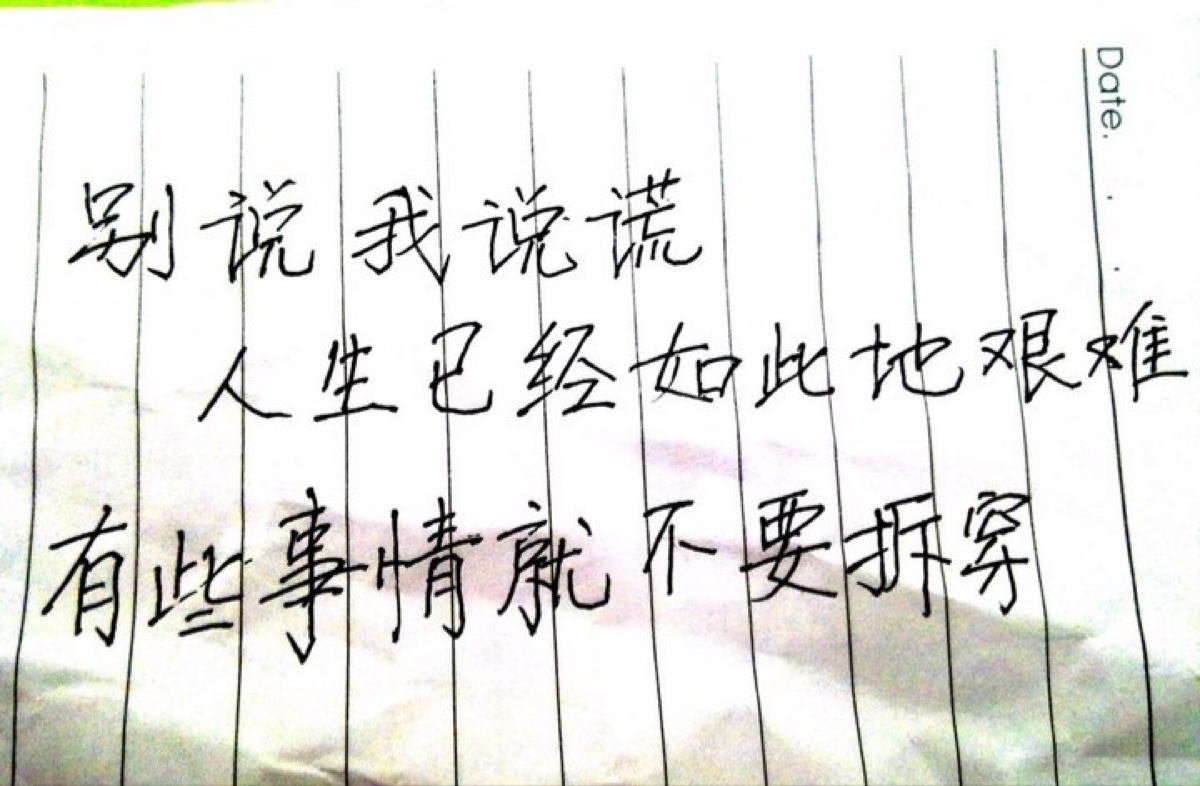 Date.
别说我说谎
人生已经如此地艰难
有些事情就不要拆穿